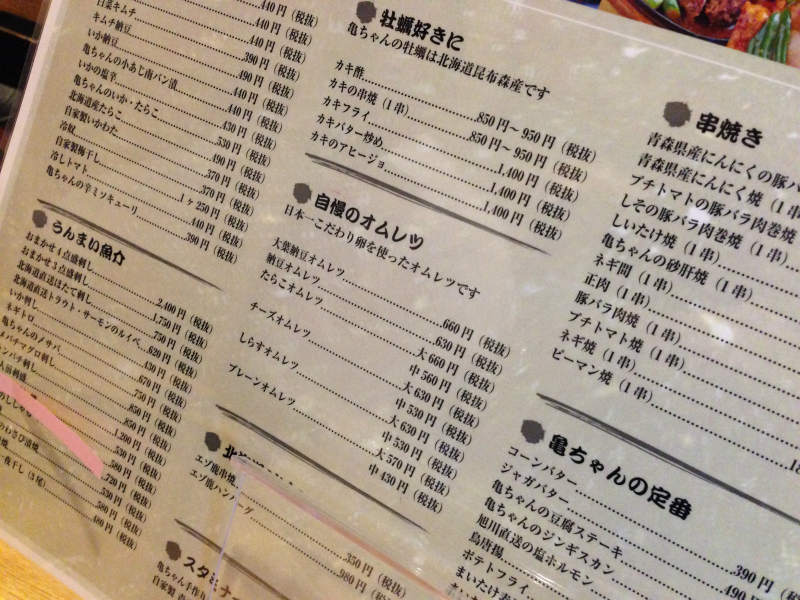 440円（税抜）
440円（税抜）
白菜キムチ 440円（税抜）
キムチ納豆 440円（税抜）
いか納豆 390円（税抜）
亀ちゃんの小あじ南バン漬 490円（税抜）
いかの塩辛 440円（税抜）
亀ちゃんのいか・たらこ 440円（税抜）
北海道産たらこ 430円（税抜）
自家製いかわた 530円（税抜）
冷奴 490円（税抜）
自家製梅干し 370円（税抜）
冷しトマト 370円（税抜）
1ヶ250円（税抜）
亀ちゃんの辛ミソキューリ 440円（税抜）
390円（税抜）
うんまい魚介
おまかせ4点盛刺し 2,400円（税抜）
おまかせ3点盛刺し 1,750円（税抜）
北海道直送ほたて刺し 750円（税抜）
北海道直送トラウト・サーモンのルイベ 620円（税抜）
いか刺し 430円（税抜）
ネギトロ 670円（税抜）
亀ちゃんのメサバ 750円（税抜）
850円（税抜）
850円（税抜）
1,200円（税抜）
530円（税抜）
580円（税抜）
530円（税抜）
580円（税抜）
480円（税抜）
牡蠣好きに
亀ちゃんの牡蠣は北海道昆布森産です
カキ酢 850円～950円（税抜）
カキの串焼（1串） 850円～950円（税抜）
カキフライ 1,400円（税抜）
カキバター炒め 1,400円（税抜）
カキのアヒージョ 1,400円（税抜）
自慢のオムレツ
日本一こだわり卵を使ったオムレツです
大葉納豆オムレツ 660円（税抜）
納豆オムレツ 630円（税抜）
たらこオムレツ 大660円（税抜）
中560円（税抜）
チーズオムレツ 大630円（税抜）
中530円（税抜）
しらすオムレツ 大630円（税抜）
中530円（税抜）
プレーンオムレツ 大570円（税抜）
中430円（税抜）
エゾ鹿串焼 350円（税抜）
エゾ鹿ハンバーグ 980円（税抜）
スタミナ
亀ちゃん手作り
自家製
串焼き
青森県産にんにくの豚バ
青森県産にんにく焼（1串
プチトマトの豚バラ肉巻焼
しその豚バラ肉巻焼（1串）
しいたけ焼（1串）
亀ちゃんの砂肝焼（1串）
ネギ間（1串）
正肉（1串）
豚バラ肉焼（1串）
プチトマト焼（1串）
ネギ焼（1串）
ピーマン焼（1串）
亀ちゃんの定番
コーンバター 390円（税
ジャガバター 490円
亀ちゃんの豆腐ステーキ
亀ちゃんのジンギスカン
旭川直送の塩ホルモン
鳥唐揚
ポテトフライ
まいたけ